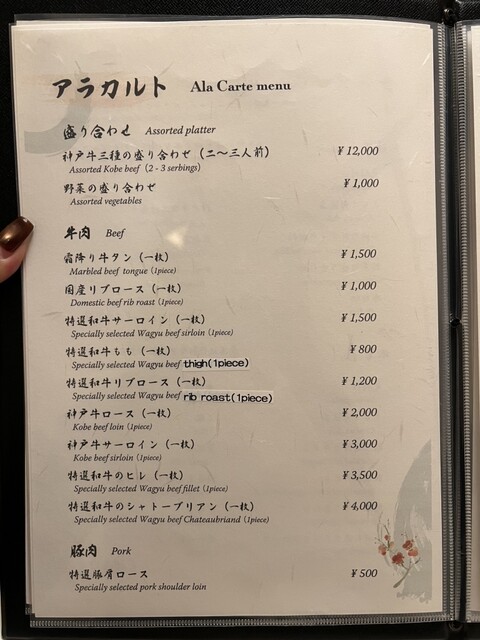 アラカルト Ala Carte menu
盛り合わせ Assorted platter
神戸牛三種の盛り合わせ（二～三人前） ¥ 12,000
Assorted Kobe beef（2 - 3 serbings）
野菜の盛り合わせ ¥ 1,000
Assorted vegetables
牛肉 Beef
霜降り牛タン（一枚） ¥ 1,500
Marbled beef tongue（1piece）
国産リブロース（一枚） ¥ 1,000
Domestic beef rib roast（1piece）
特選和牛サーロイン（一枚） ¥ 1,500
Specially selected Wagyu beef sirloin（1piece）
特選和牛もも（一枚） ¥ 800
Specially selected Wagyu beef thigh(1piece)
特選和牛リブロース（一枚） ¥ 1,200
Specially selected Wagyu beef rib roast(1piece)
神戸牛ロース（一枚） ¥ 2,000
Kobe beef loin（1piece）
神戸牛サーロイン（一枚） ¥ 3,000
Kobe beef sirloin（1piece）
特選和牛のヒレ（一枚） ¥ 3,500
Specially selected Wagyu beef fillet（1piece）
特選和牛のシャトーブリアン（一枚） ¥ 4,000
Specially selected Wagyu beef Chateaubriand（1piece）
豚肉 Pork
特選豚肩ロース ¥ 500
Specially selected pork shoulder loin